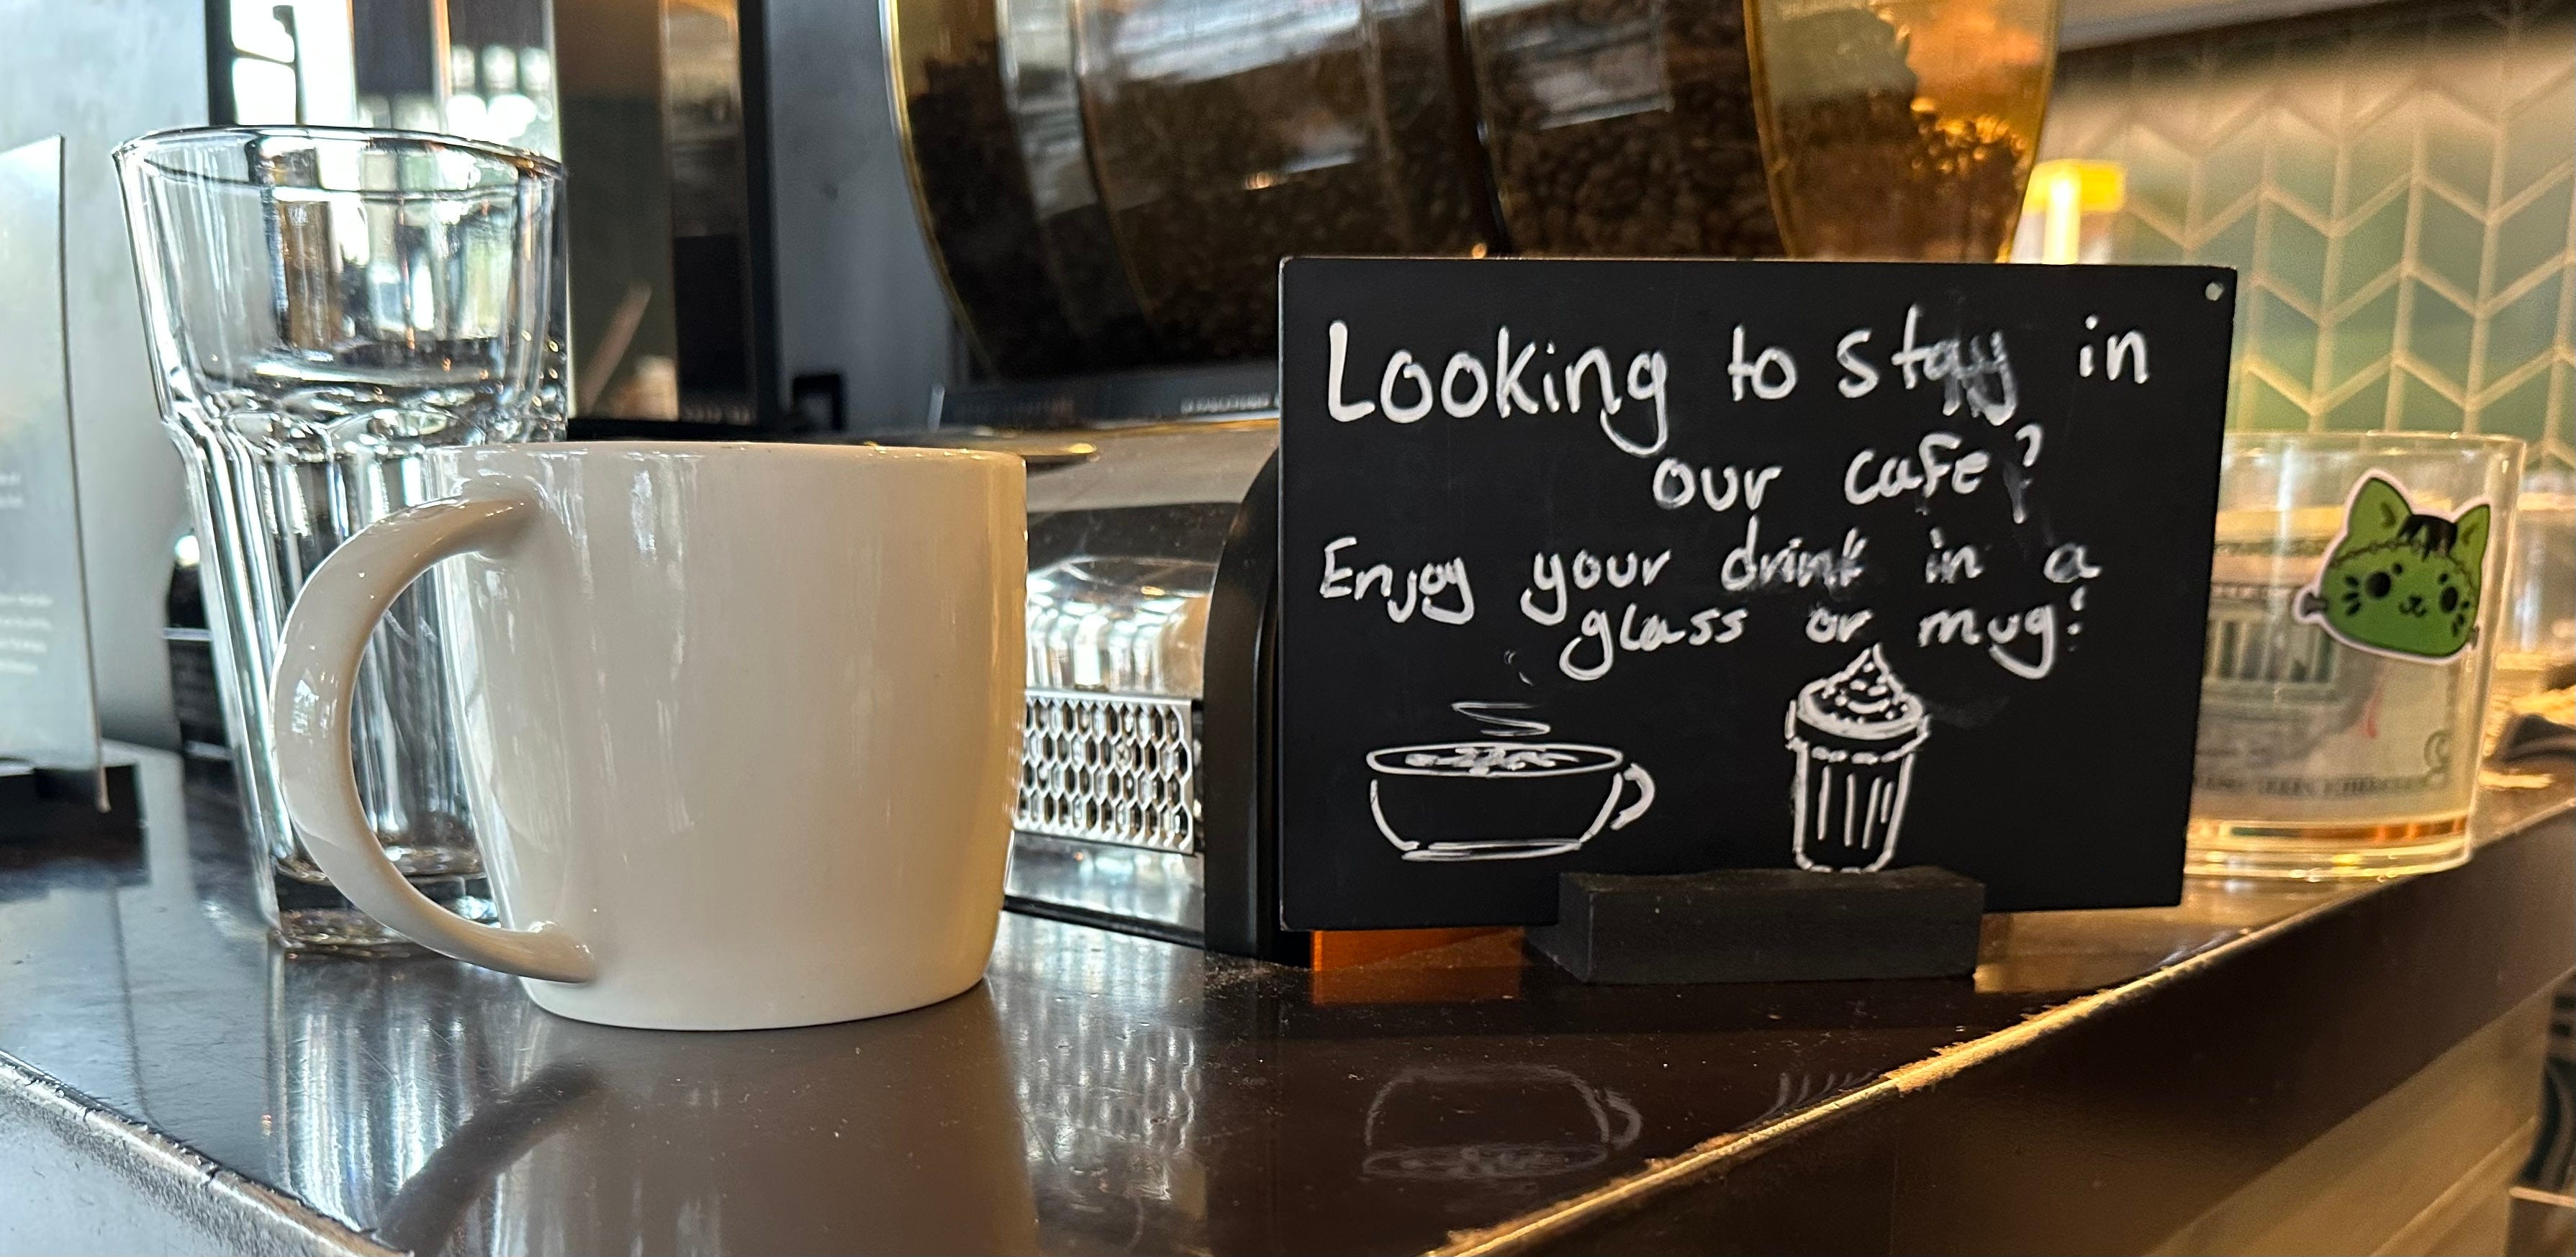 Looking to stay in
our cafe?
Enjoy your drink in a
glass or mug!